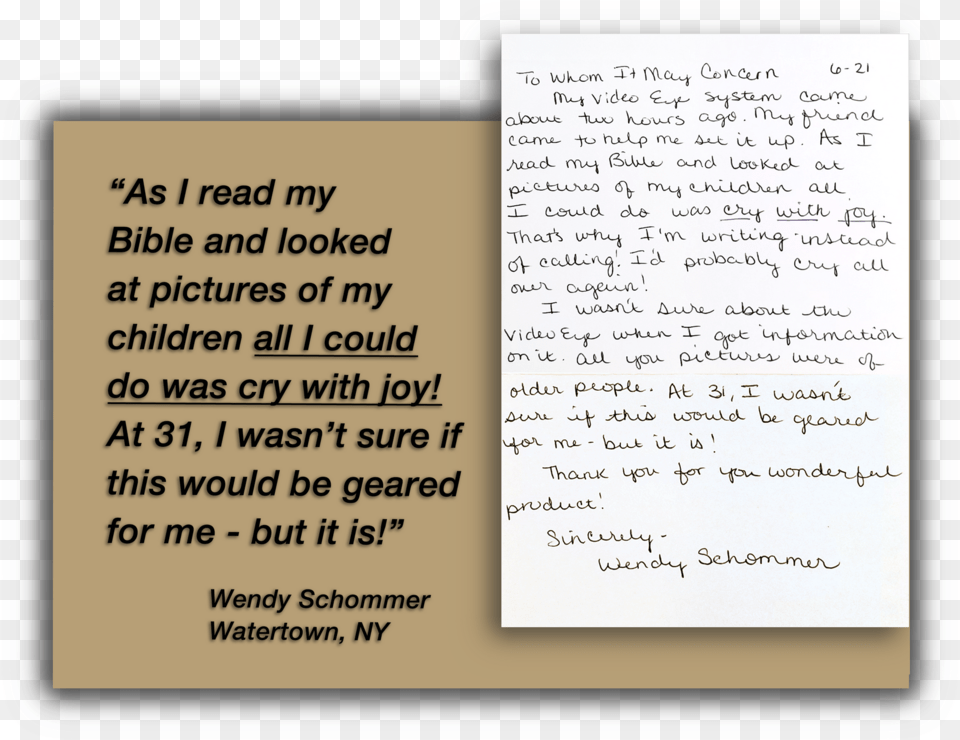 “As I read my
Bible and looked
at pictures of my
children all I could
do was cry with joy!
At 31, I wasn’t sure if
this would be geared
for me - but it is!”
Wendy Schommer
Watertown, NY
To Whom It May Concern 6-21
My Video Eye system came
about two hours ago. My friend
came to help me set it up. As I
read my Bible and looked at
pictures of my children all
I could do was cry with joy.
That's why I'm writing instead
of calling! I'd probably cry all
over again!
I wasn't sure about the
Video Eye when I got information
on it. All you pictures were of
older people. At 31, I wasn't
sure if this would be geared
for me - but it is!
Thank you for you wonderful
product!
Sincerely-
Wendy Schommer